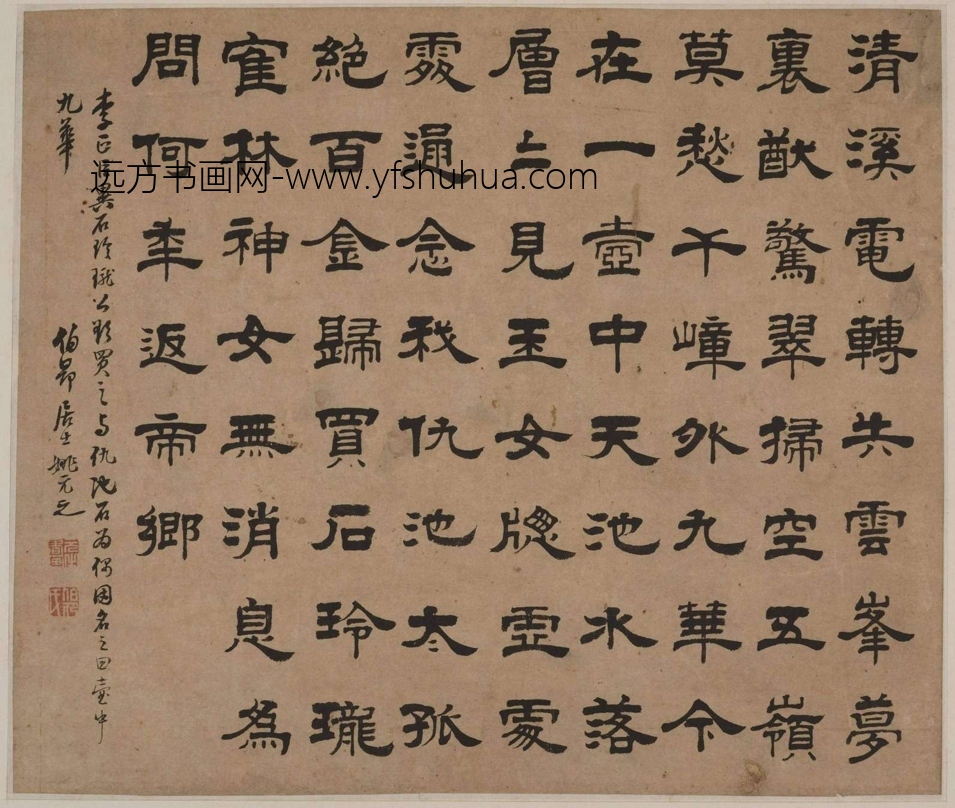 清溪電轉失雲峯夢
裏猷驚翠掃空五嶺
莫愁千嶂外九華今
在一壺中天池水落
層〻見玉女牕虛處
處通念我仇池太孤
絕百金歸買石玲瓏
寉林神女無消息爲
問何年返帝鄉
李正臣異石玲瓏公欲買之与仇池石為偶因名之曰壺中
九華 伯昂居士姚元之
远方书画网-www.yfshuhua.com